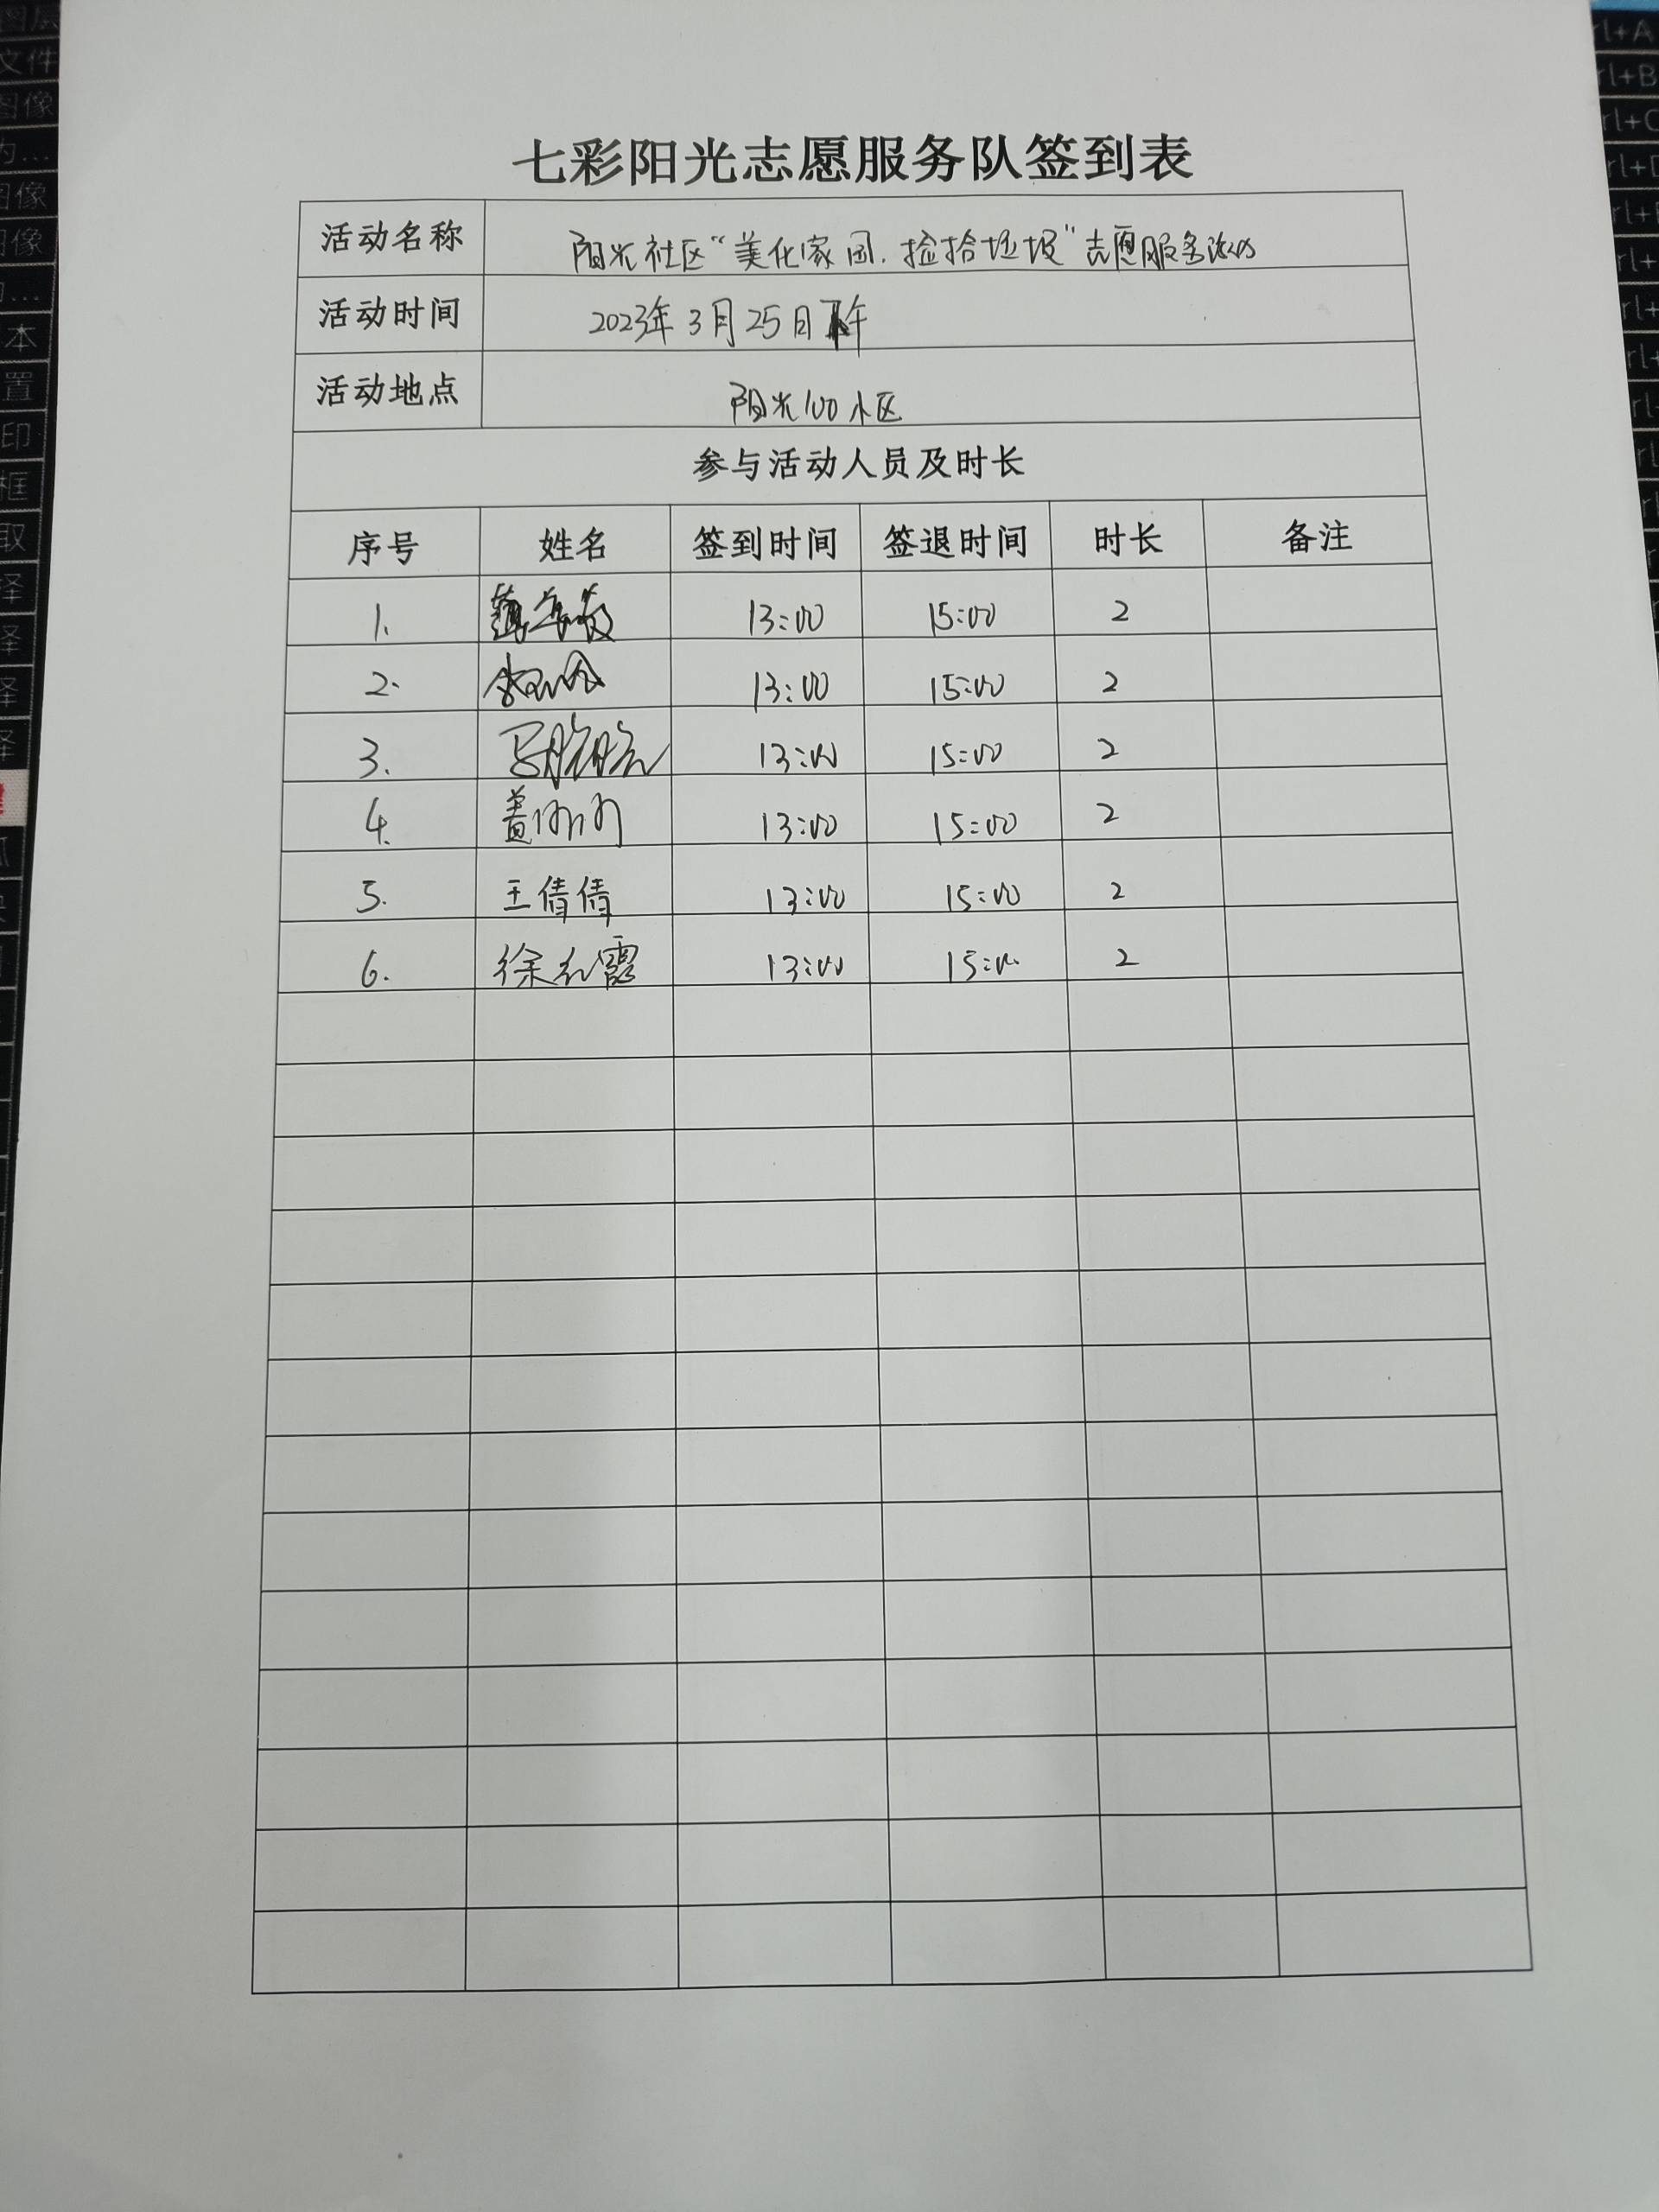 七彩阳光志愿服务队签到表
活动名称 阳光社区“美化家园、捡拾垃圾”志愿服务活动
活动时间 2023年3月25日下午
活动地点 阳光100小区
参与活动人员及时长
序号 姓名 签到时间 签退时间 时长 备注
1. 13:00 15:00 2
2. 13:00 15:00 2
3. 13:00 15:00 2
4. 13:00 15:00 2
5. 王倩倩 13:00 15:00 2
6. 徐 霞 13:00 15:00 2
图层
文件
图像
为...
图像
图像
本
置
印
框
取
择
择
择
择
rl+A
rl+B
rl+C
rl+D